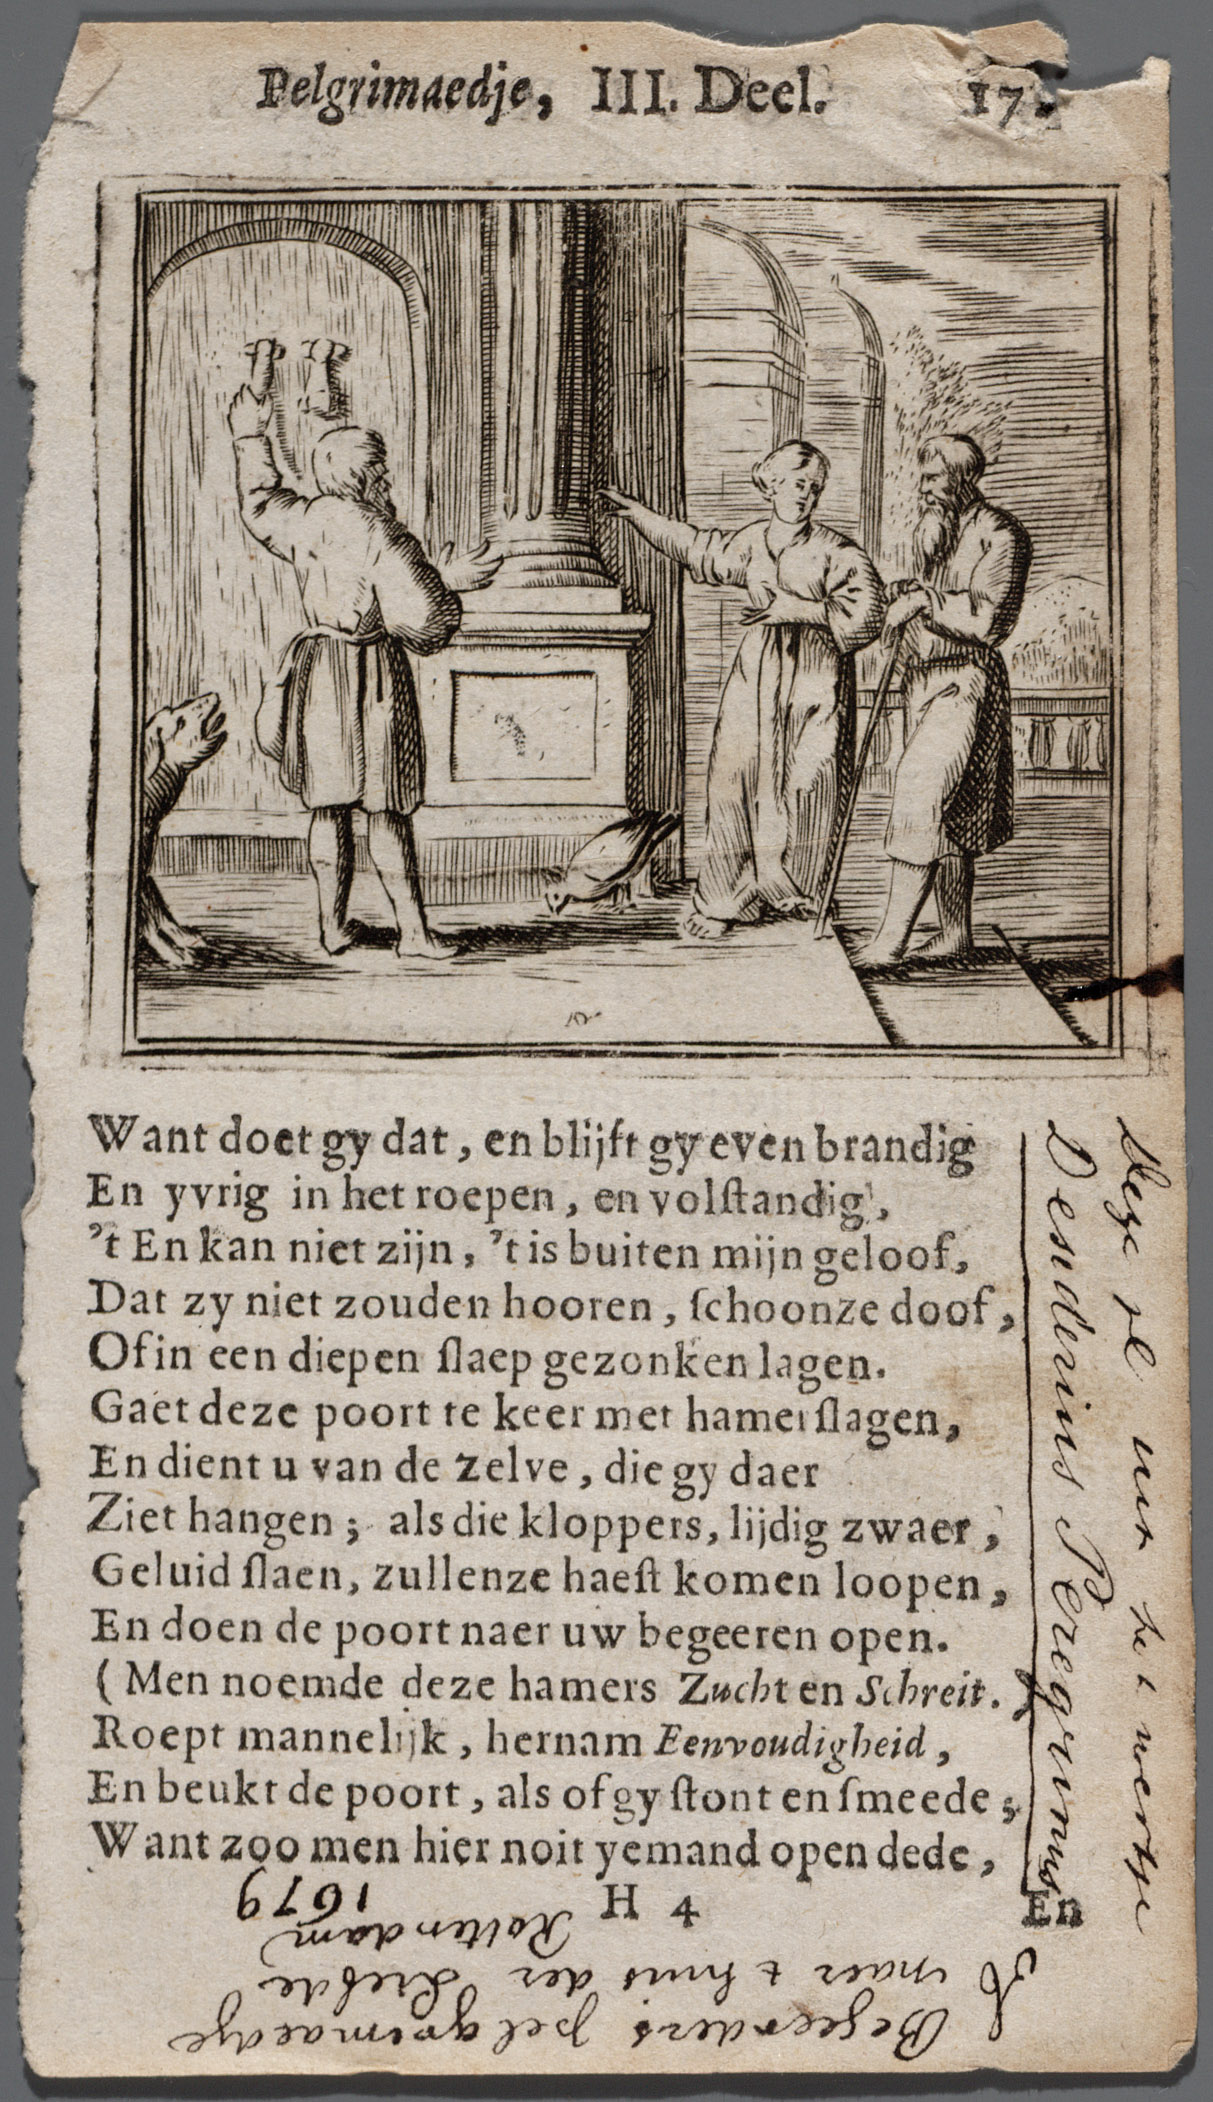 Pelgrimaedje, III. Deel. 17
Want doet gy dat, en blijft gy even brandig
En yvrig in het roepen, en volſtandig,
't En kan niet zijn, 't is buiten mijn geloof,
Dat zy niet zouden hooren, ſchoonze doof,
Of in een diepen ſlaep gezonken lagen.
Gaet deze poort te keer met hamerſlagen,
En dient u van de zelve, die gy daer
Ziet hangen; als die kloppers, lijdig zwaer,
Geluid ſlaen, zullenze haeſt komen loopen,
En doen de poort naer uw begeeren open.
(Men noemde deze hamers Zucht en Schreit.
Roept mannelijk, hernam Eenvoudigheid,
En beukt de poort, als of gy ſtont en ſmeede;
Want zoo men hier noit yemand open dede,
H 4 En
Deze pl uit het
Desiderius Peregrinus
Begeerders pelgrimaedje
naer t huis der Liefde
Rotterdam
1679